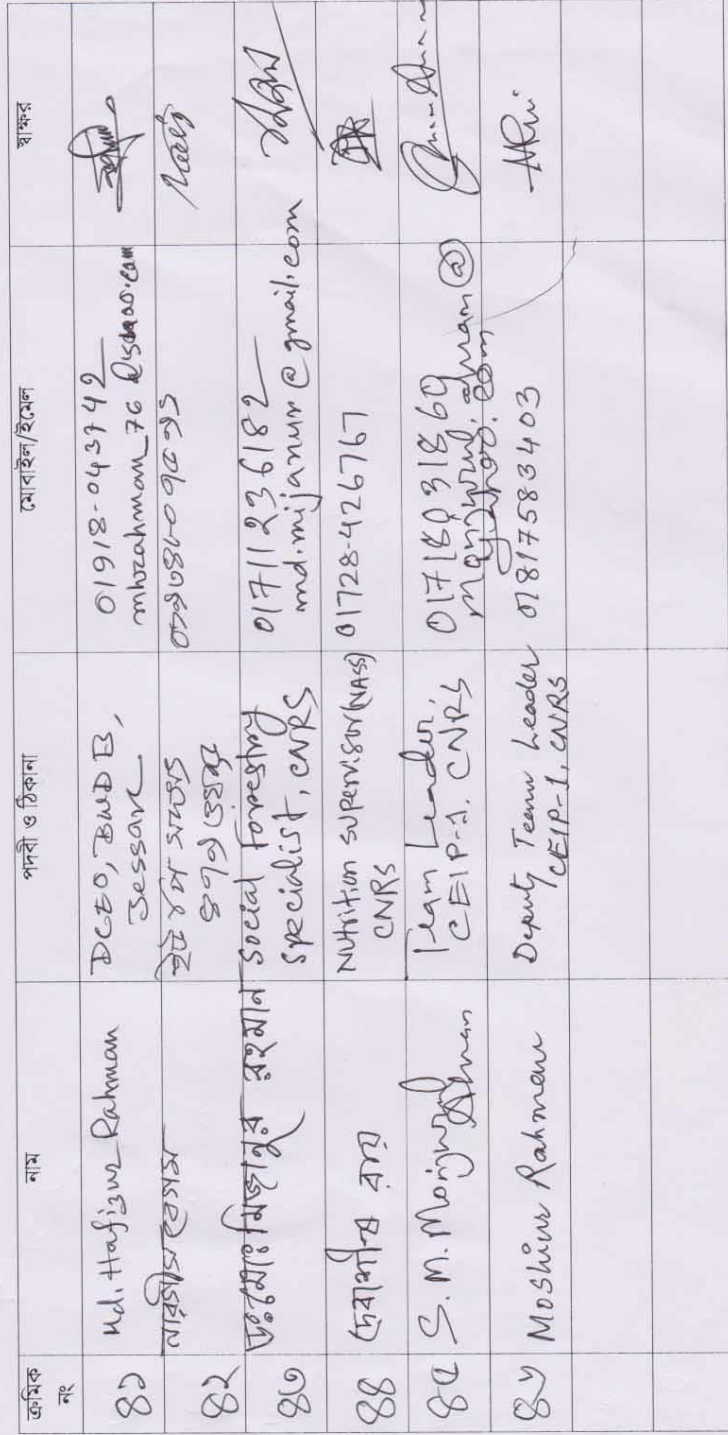 ক্রমিক নং
নাম
পদবী ও ঠিকানা
মোবাইল/ইমেল
স্বাক্ষর
৪১
Md. Hafizur Rahman
DCEO, BWDB,
Jessore
01918-043742
৪২
নারগীস বেগম
ইউপি সদস্য
৪৩
ডঃ মোঃ মিজানুর রহমান
Social Forestry
Specialist, CNRS
01711236182
md.mijanur@gmail.com
৪৪
দেবাশীষ রায়
Nutrition Supervisor (NASS)
CNRS
01728-426767
৪৫
S. M. Monjurul Ahsan
Team Leader,
CEIP-1. CNRS
৪৬
Moshiur Rahman
Deputy Team Leader
CEIP-1, CNRS
01817583403